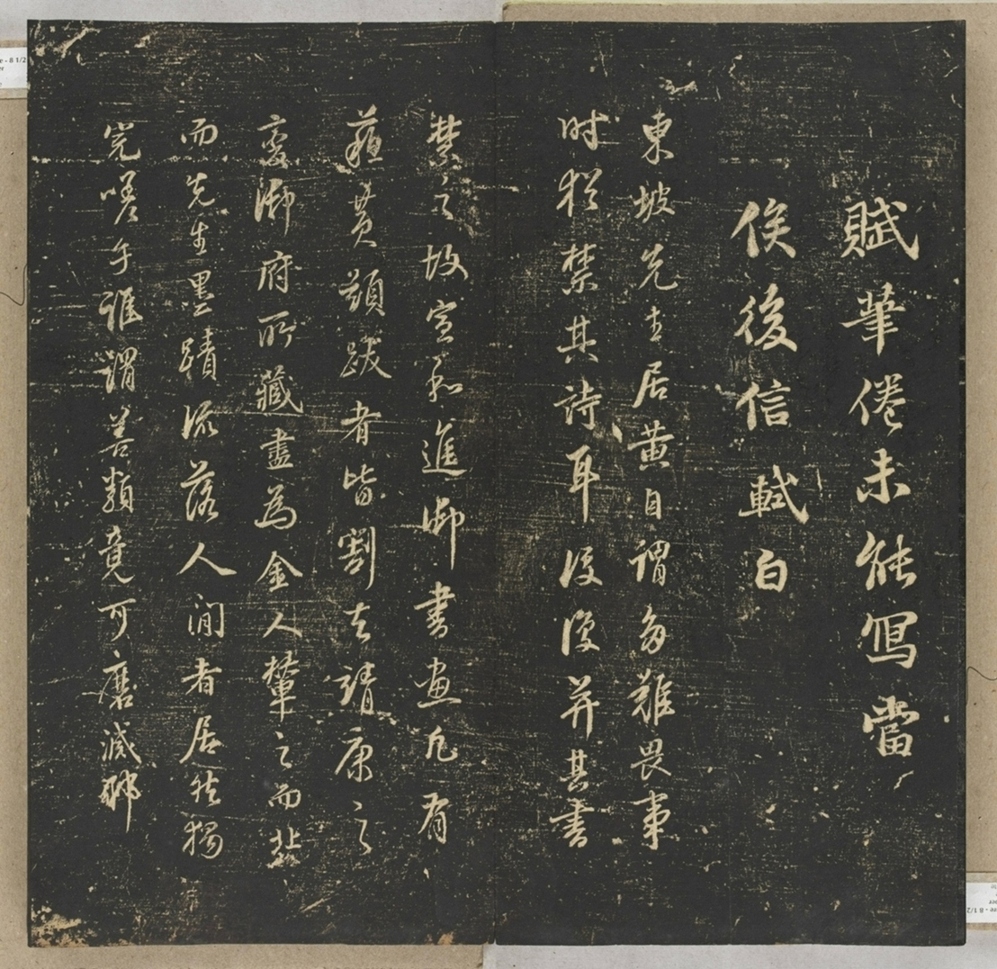 賦筆倦未能寫當
俟後信軾白
東坡先生居黃自謂多難畏事
时猶禁其詩耳没後并其書
禁之故宣和進御書畫凡有
蘇黃題跋者皆割去靖康之
變御府所藏盡為金人輦之而北
而先生墨蹟流落人間者居然獨
完嗟乎誰謂善類竟可磨滅耶